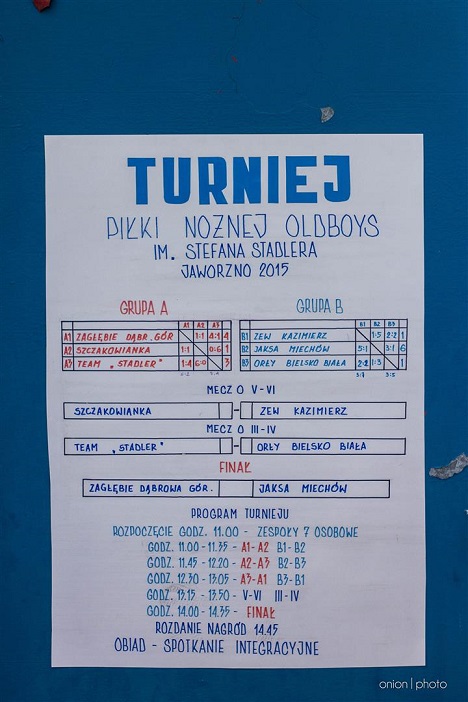 TURNIEJ
PIŁKI NOŻNEJ OLDBOYS
IM. STEFANA STADLERA
JAWORZNO 2015
GRUPA A
A1 A2 A3
A1 ZAGŁĘBIE DĄBR. GÓR 1:1 4:1 4
A2 SZCZAKOWIANKA 1:1 0:6 1
A3 TEAM „STADLER" 1:4 6:0 3
GRUPA B
B1 B2 B3
B1 ZEW KAZIMIERZ 1:5 2:2 1
B2 JAKSA MIECHÓW 5:1 3:1 6
B3 ORŁY BIELSKO BIAŁA 2:2 1:3 1
MECZ O V-VI
SZCZAKOWIANKA - ZEW KAZIMIERZ
MECZ O III-IV
TEAM „STADLER" - ORŁY BIELSKO BIAŁA
FINAŁ
ZAGŁĘBIE DĄBROWA GÓR. JAKSA MIECHÓW
PROGRAM TURNIEJU
ROZPOCZĘCIE GODZ. 11.00 - ZESPOŁY 7 OSOBOWE
GODZ. 11.00 - 11.35 - A1-A2 B1-B2
GODZ. 11.45 - 12.20 - A2-A3 B2-B3
GODZ. 12.30 - 13.05 - A3-A1 B3-B1
GODZ. 13.15 - 13.50 - V-VI III-IV
GODZ. 14.00 - 14.35 - FINAŁ
ROZDANIE NAGRÓD 14.45
OBIAD - SPOTKANIE INTEGRACYJNE
onion | photo